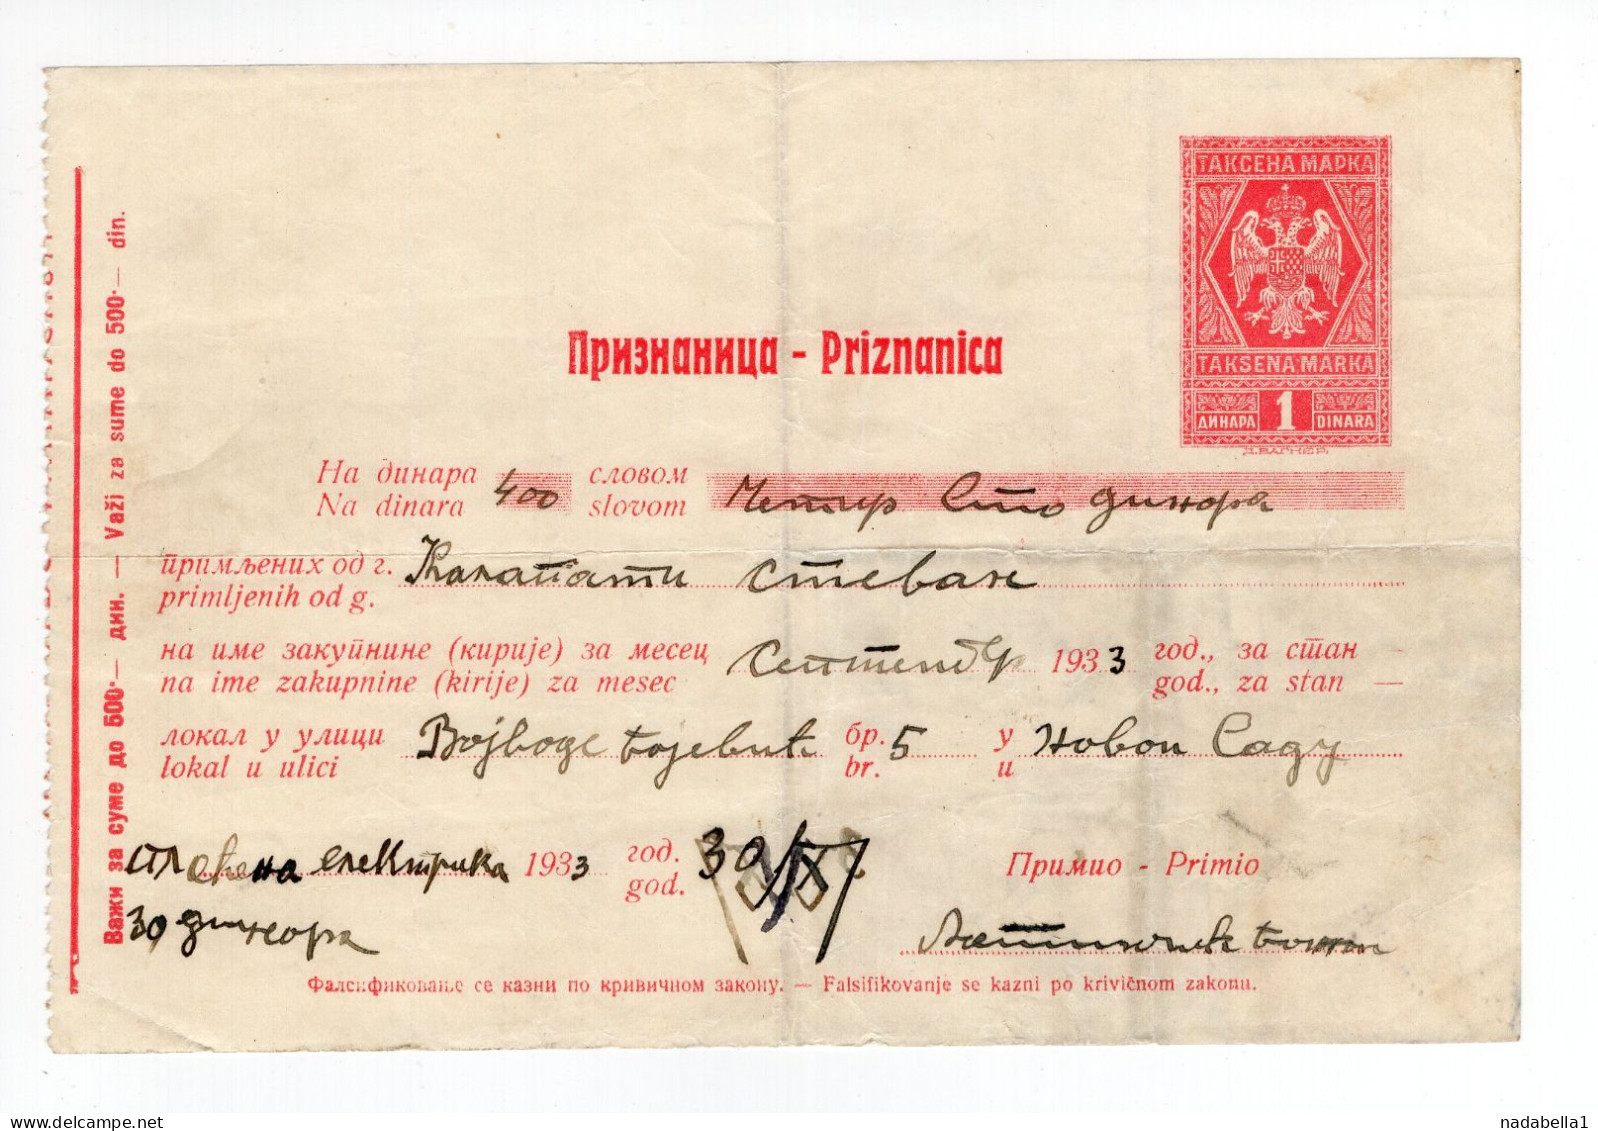 ТАКСЕНА МАРКА
TAKSENA MARKA
ДИНАРА 1 DINARA
Признаница - Priznanica
На динара 400 словом Четир Сто динара
Na dinara slovom
примљених од г. Стеван
primljenih od g.
на име закупнине (кирије) за месец Септембр 1933 год., за стан —
na ime zakupnine (kirije) za mesec god., za stan —
локал у улици Војводе Бојевић бр. 5 у Новом Саду
lokal u ulici br. u
електрика 1933 год. 30/IX
god.
30 динара
Примио - Primio
Фалсификовање се казни по кривичном закону. — Falsifikovanje se kazni po krivičnom zakonu.
Важи за суме до 500·— дин. — Važi za sume do 500·— din.
nadabella1